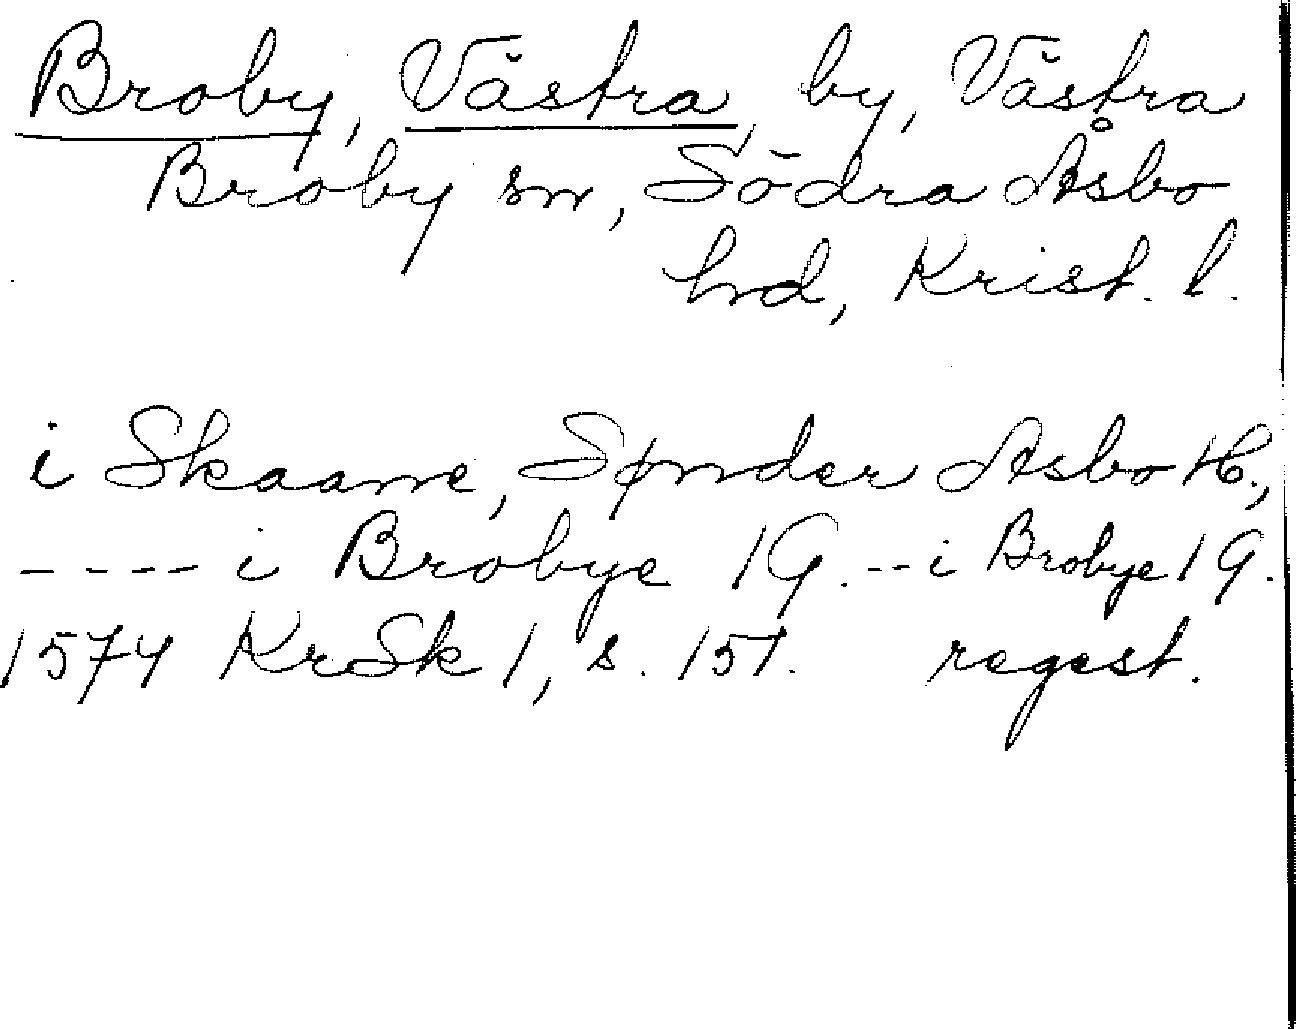 Broby, Västra, by, Västra
Broby sn, Södra Åsbo
hd, Krist. l.
i Skaane, Sønder Asbo H.,
---- i Brobye 1 G. -- i Brobye 1 G.
1574 KrSk 1, s. 151. regest.